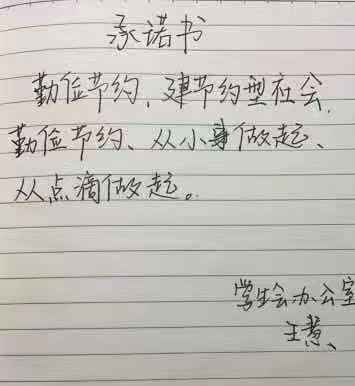 承诺书
勤俭节约、建节约型社会、
勤俭节约、从小事做起、
从点滴做起。
学生会办公室
王慧、